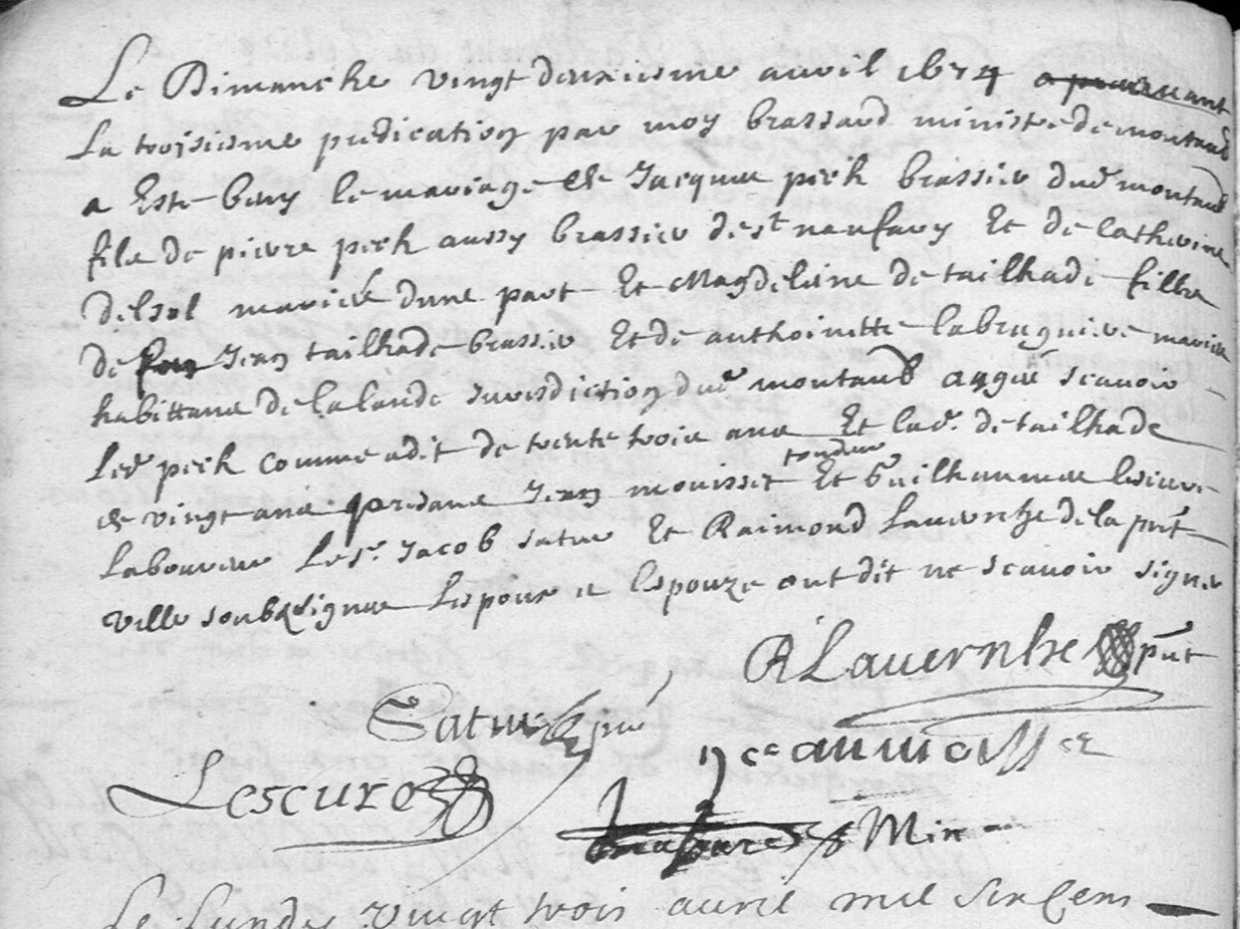 Le Dimanche vingt deuxiesme auvil 1674
La troisiesme predication par moy brassard ministre de montaub
a Este beny le mariage de Jacques pech brassier dud montaub
fils de pierre pech aussy brassier de st naufary Et de Catherine
delsol mariés dune part Et Magdeleine de tailhade fille
de Jean tailhade brassier Et de anthoinette labruguiere mariés
habittans de lalande Jurisdiction dud montaub aages scavoir
Led pech comme a dit de trente trois ans Et lad. de tailhade
de vingt ans presans Jean mouisset tondeur Et Guilhaumes lescure
Laboureur Le sr. Jacob satur Et Raimond Lauernhe de la pnt
ville soubzsignes Lespoux et Lespouze ont dit ne scavoir signer
R Lauernhe pnt
Satur pnt
Lescure
Min
Le Lundy vingt trois auril mil six cens